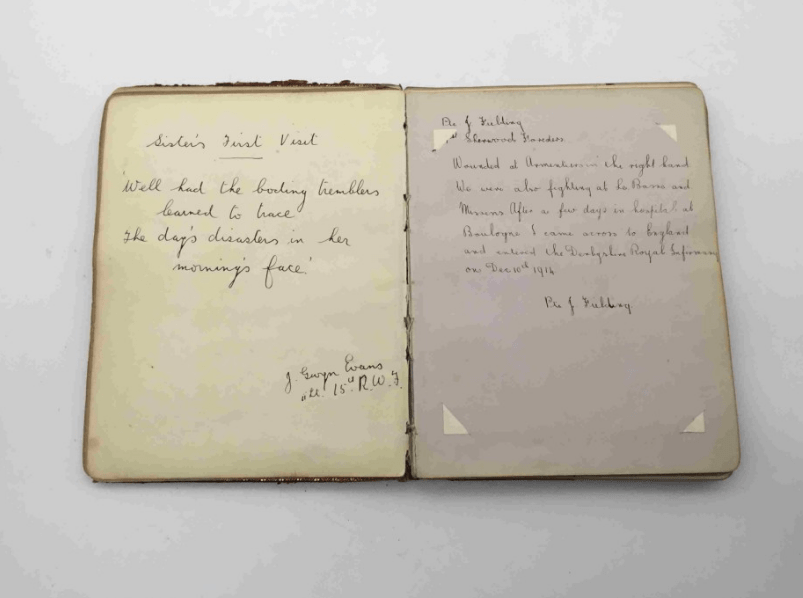 Sister's First Visit
'Well had the boding tremblers
learned to trace
The day's disasters in her
morning's face.'
J. Gwyn Evans
15th R.W.F.
Pte J. Fielding
Sherwood Foresters
Wounded at Armentieres in the right hand
We were also fighting at La Basse and
Messens After a few days in hospital at
Boulogne I came across to England
and entered the Derbyshire Royal Infirmary
on Dec 10th 1914
Pte J. Fielding